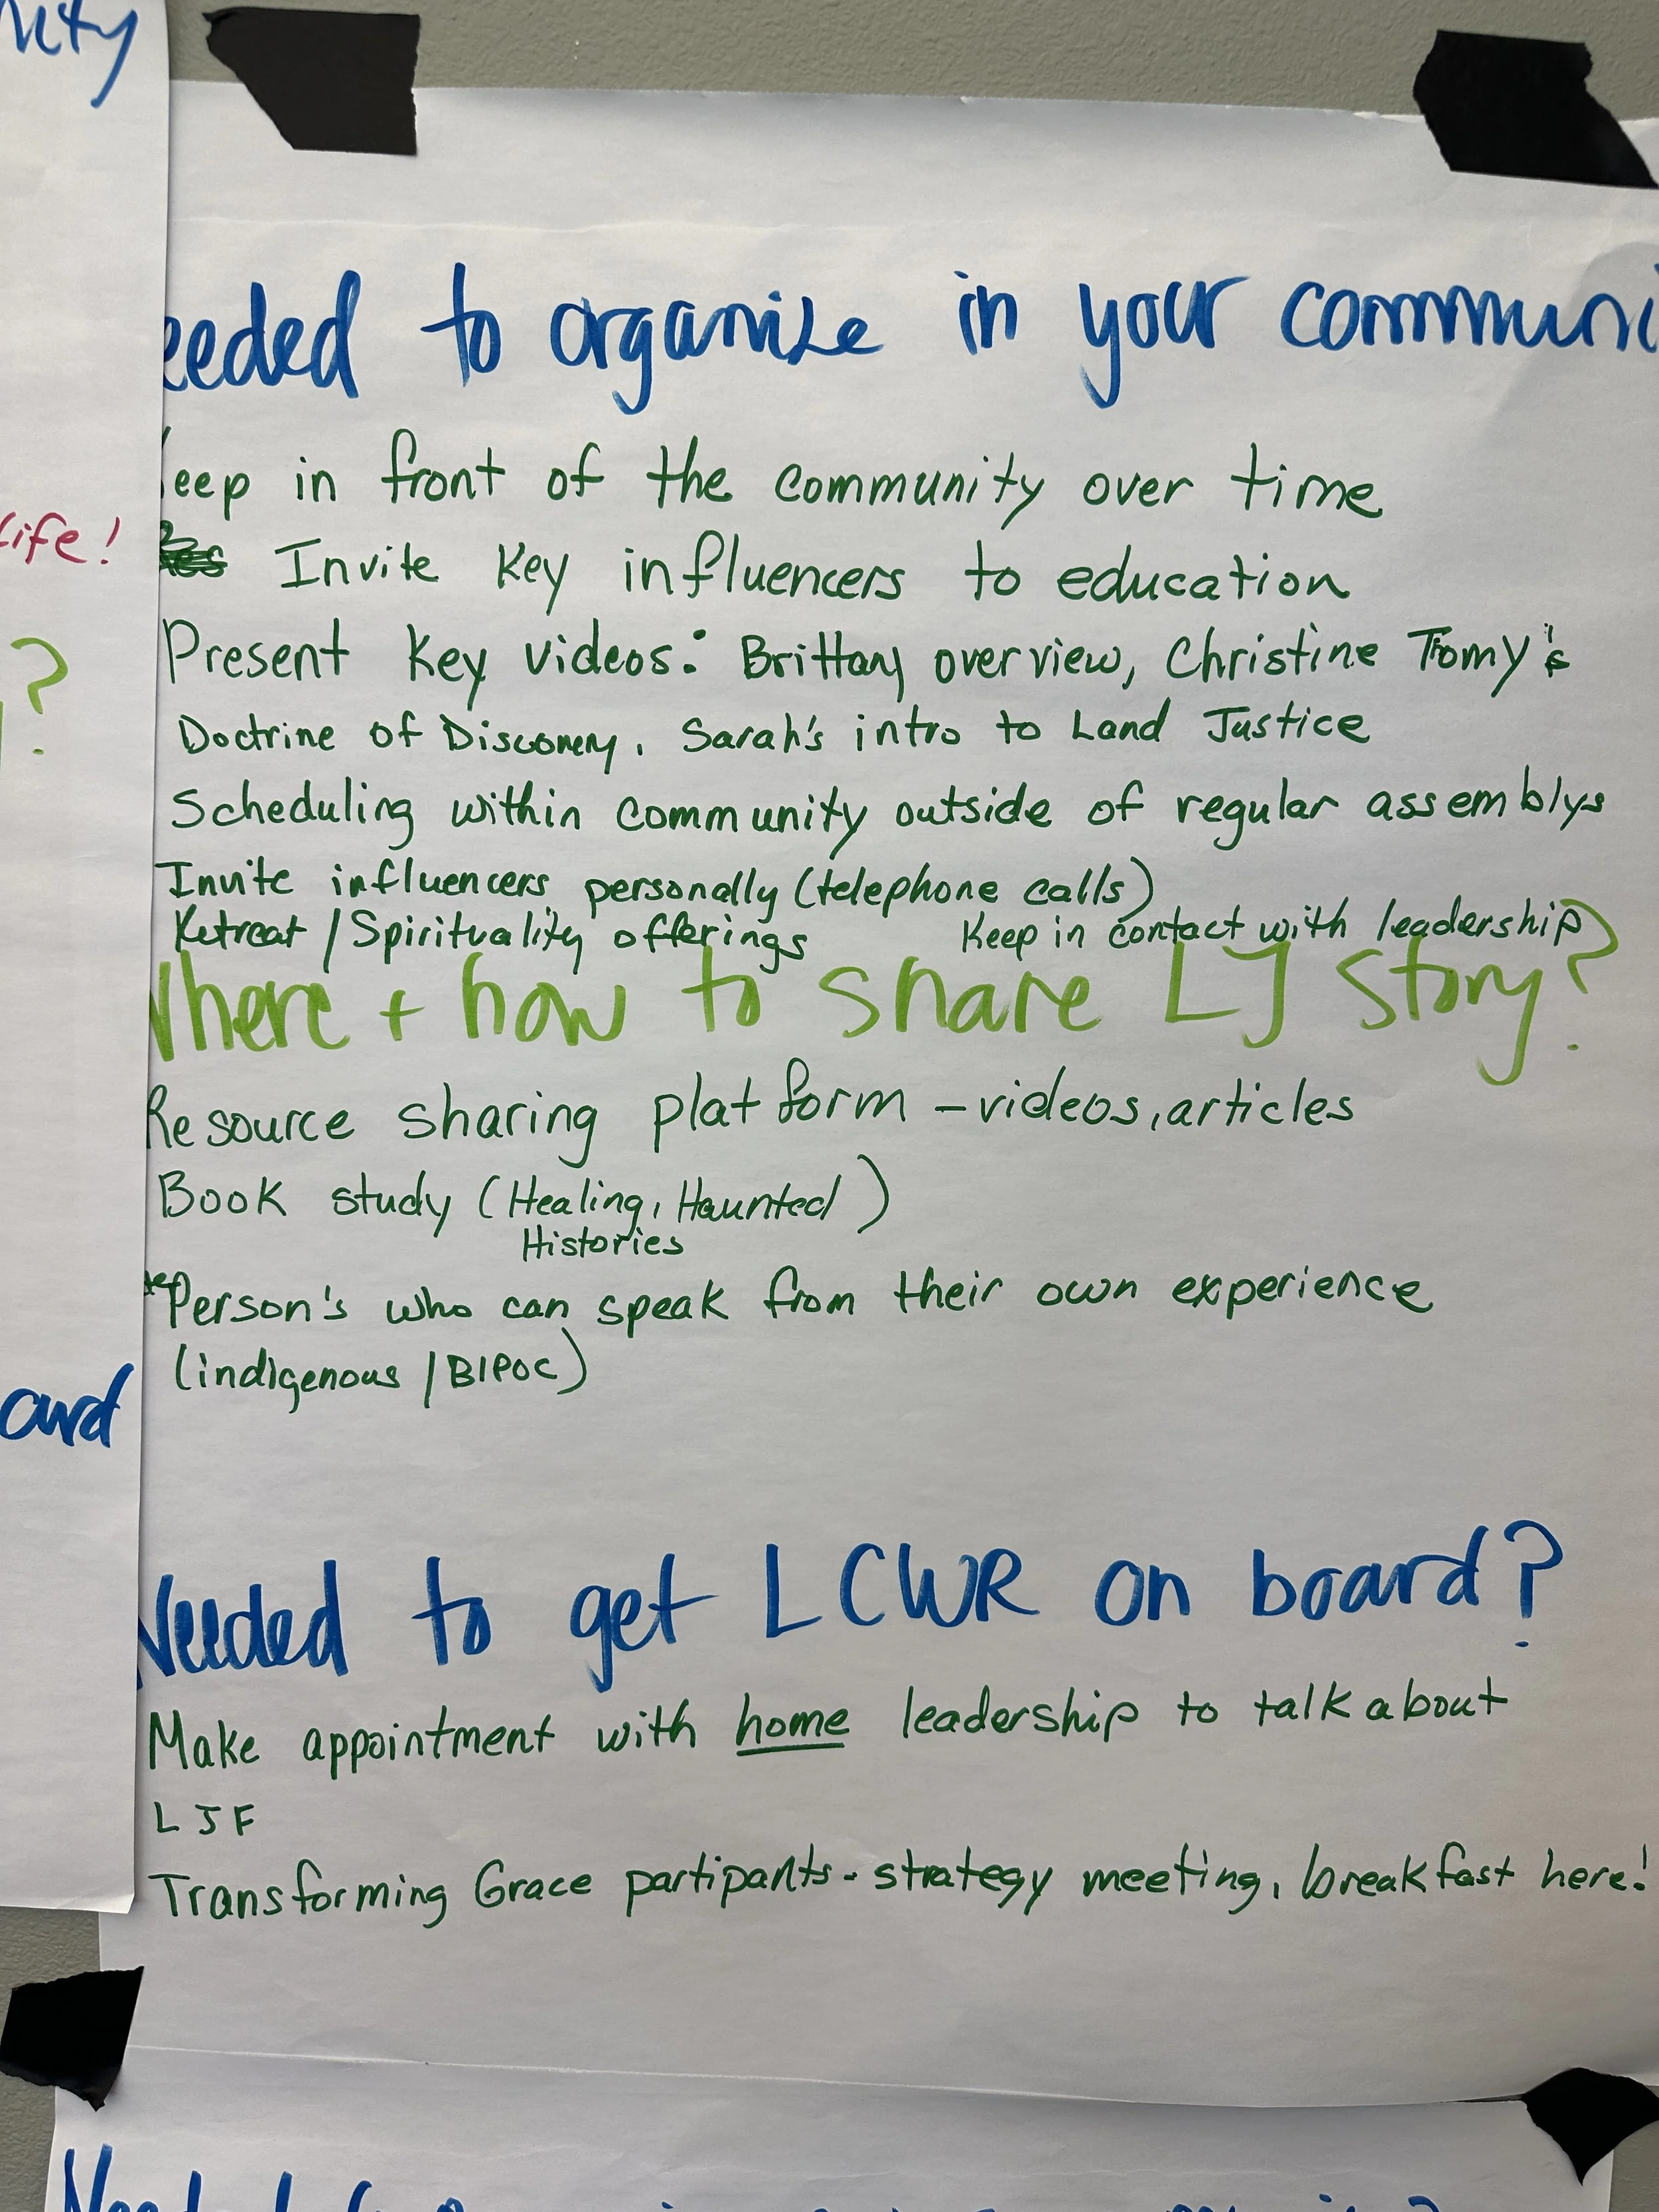 nity
eeded to organize in your communi
eep in front of the community over time
Invite Key influencers to education
life!
Present Key videos: Brittany overview, Christine Tromy's
?
Doctrine of Discovery, Sarah's intro to Land Justice
Scheduling within community outside of regular assemblys
Invite influencers personally (telephone calls)
Retreat / Spirituality offerings Keep in contact with leadership
Where + how to share LJ story?
Resource sharing platform - videos, articles
Book study (Healing, Haunted)
Histories
Person's who can speak from their own experience
(indigenous / BIPOC)
oard
Needed to get LCWR on board?
Make appointment with home leadership to talk about
LJF
Transforming Grace partipants - strategy meeting, breakfast here!